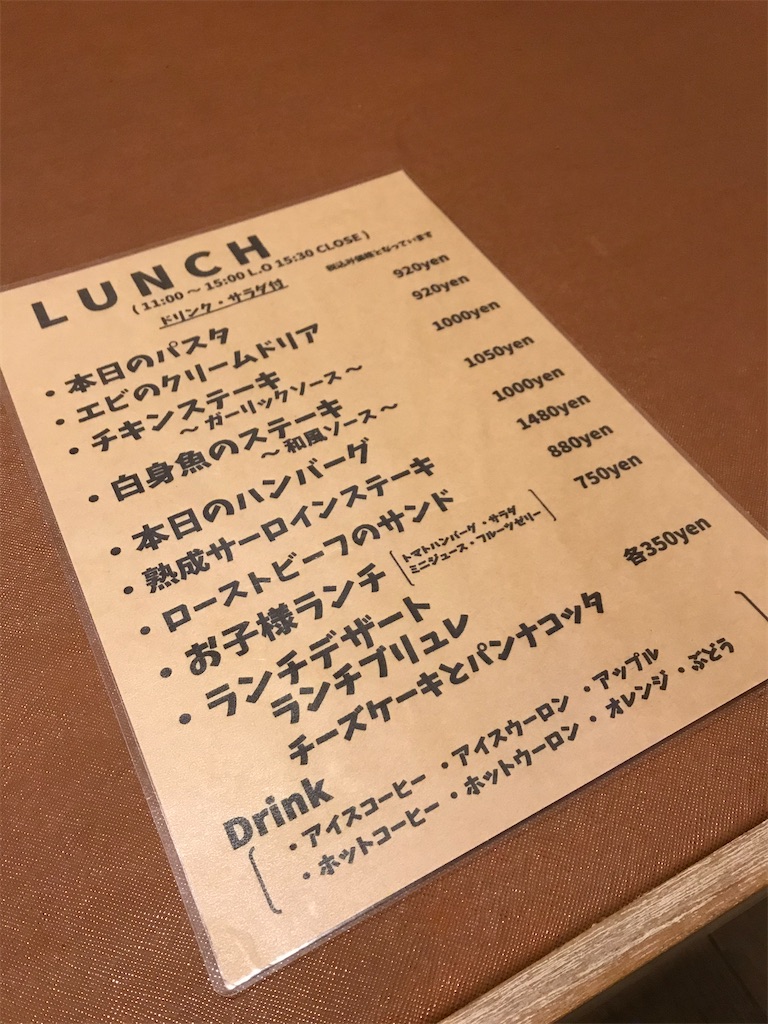 LUNCH
(11:00 ～ 15:00 L.O 15:30 CLOSE)
ドリンク・サラダ付
税込み価格となっています
・本日のパスタ 920yen
・エビのクリームドリア 920yen
・チキンステーキ 1000yen
～ ガーリックソース ～
・白身魚のステーキ 1050yen
～ 和風ソース ～
・本日のハンバーグ 1000yen
・熟成サーロインステーキ 1480yen
・ローストビーフのサンド 880yen
・お子様ランチ [トマトハンバーグ・サラダ 750yen
ミニジュース・フルーツゼリー]
・ランチデザート 各350yen
ランチブリュレ
チーズケーキとパンナコッタ
Drink
・アイスコーヒー ・アイスウーロン ・アップル
・ホットコーヒー ・ホットウーロン ・オレンジ ・ぶどう